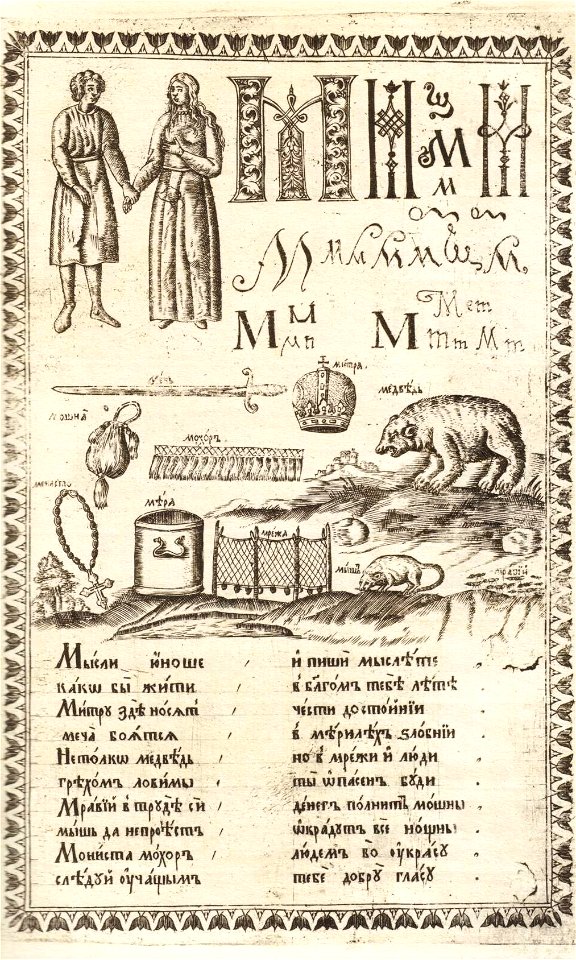 М
мечь
митра
медвѣдь
мошна
мохоръ
монисто
мѣра
мрежа
мышь
мравїи
Мысли юноше , и пиши мыслѣте
какѡ бы жити в блгомъ тебѣ лѣтѣ
Митру здѣ носятъ чести достойнїи
меча боятся в мѣрилѣхъ ѕлобнїи
Нетолкѡ медвѣдь но в мрежи и люди
грѣхомъ ловимы ты ѡпасенъ буди
Мравїй в трудѣ сы денегъ полнитъ мошны
мышь да непроѣстъ ѡкрадутъ все нощны
Мониста мохоръ людемъ во оукрасу
слѣдуй оучащымъ тебе добру гласу